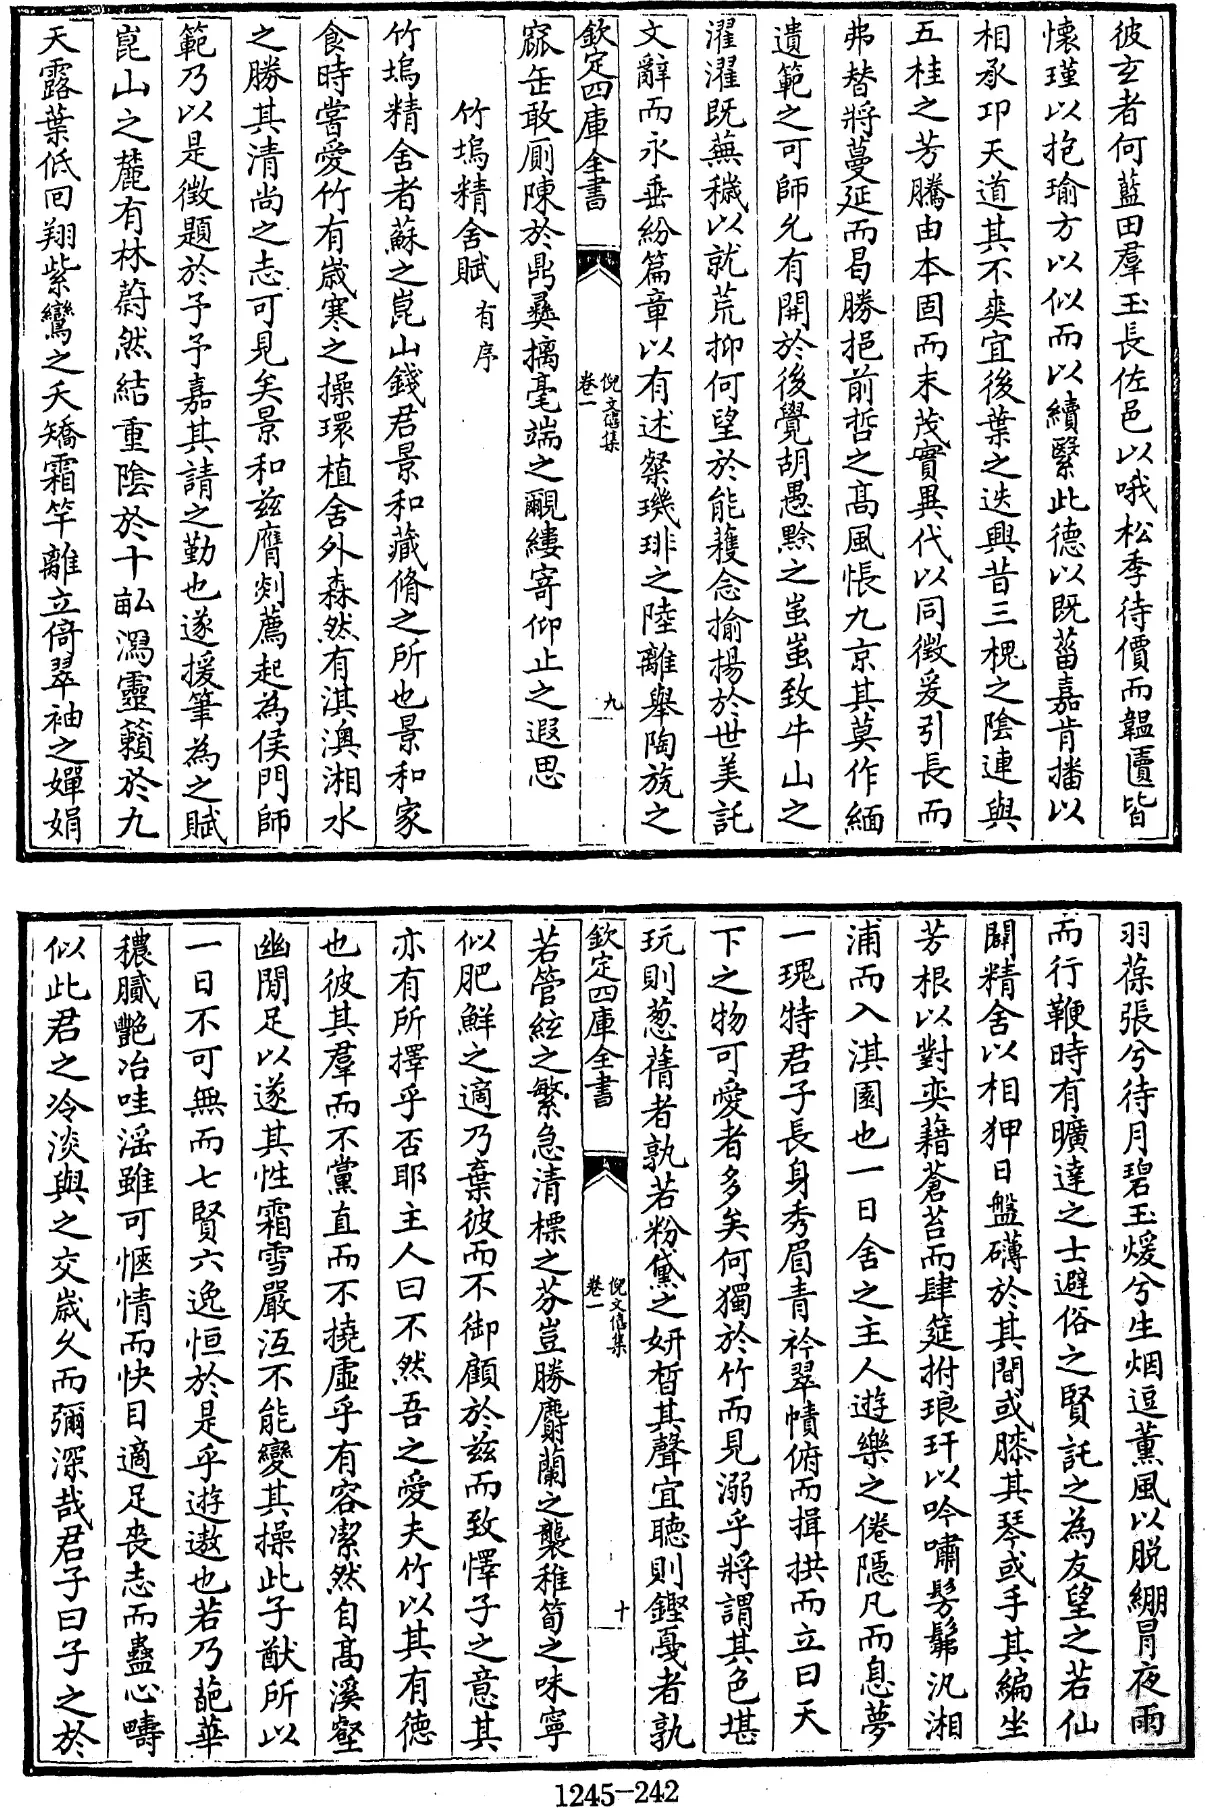 彼玄者何藍田羣玉長佐邑以哦松季待價而韞匵皆
懷瑾以抱瑜方以似而以續繄此德以既菑嘉肯播以
相承卭天道其不爽宜後葉之迭興昔三槐之陰連與
五桂之芳騰由本固而末茂實異代以同徵爰引長而
弗替將蔓延而曷勝挹前哲之髙風悵九京其莫作緬
遺範之可師允有開於後覺胡愚黔之蚩蚩致牛山之
濯濯既蕪穢以就荒抑何望於能穫念揄揚於世美託
文辭而永垂紛篇章以有述粲璣琲之陸離舉陶旊之
欽定四庫全書
倪文僖集
卷一
九
窳缶敢厠陳於鼎彞摛毫端之覼縷寄仰止之遐思
竹塢精舍賦 有序
竹塢精舍者蘇之崑山錢君景和藏脩之所也景和家
食時嘗愛竹有嵗寒之操環植舍外森然有淇澳湘水
之勝其清尚之志可見矣景和兹膺剡薦起為侯門師
範乃以是徵題於予予嘉其請之勤也遂援筆為之賦
崑山之麓有林蔚然結重陰於十畝瀉靈籟於九
天露葉低回翔紫鸞之夭矯霜竿離立倚翠袖之嬋娟
羽葆張兮待月碧玉煖兮生烟逗薰風以脱繃冐夜雨
而行鞭時有曠達之士避俗之賢託之為友望之若仙
闢精舍以相狎日盤礴於其間或膝其琴或手其編坐
芳根以對奕藉蒼苔而肆筵拊琅玕以吟嘯髣髴汎湘
浦而入淇園也一日舍之主人遊樂之倦隱凡而息夢
一瑰特君子長身秀眉青衿翠幘俯而揖拱而立曰天
下之物可愛者多矣何獨於竹而見溺乎將謂其色堪
玩則葱蒨者孰若粉黛之妍晳其聲宜聽則鏗戞者孰
欽定四庫全書
倪文僖集
卷一
十
若管絃之繁急清標之芬豈勝麝蘭之襲稚筍之味寧
似肥鮮之適乃棄彼而不御顧於兹而致懌子之意其
亦有所擇乎否耶主人曰不然吾之愛夫竹以其有德
也彼其羣而不黨直而不撓虛乎有容潔然自髙溪壑
幽閒足以遂其性霜雪嚴沍不能變其操此子猷所以
一日不可無而七賢六逸恒於是乎遊遨也若乃葩華
穠膩艷冶哇滛雖可愜情而快目適足喪志而蠱心疇
似此君之冷淡與之交嵗久而彌深哉君子曰子之於
1245-242